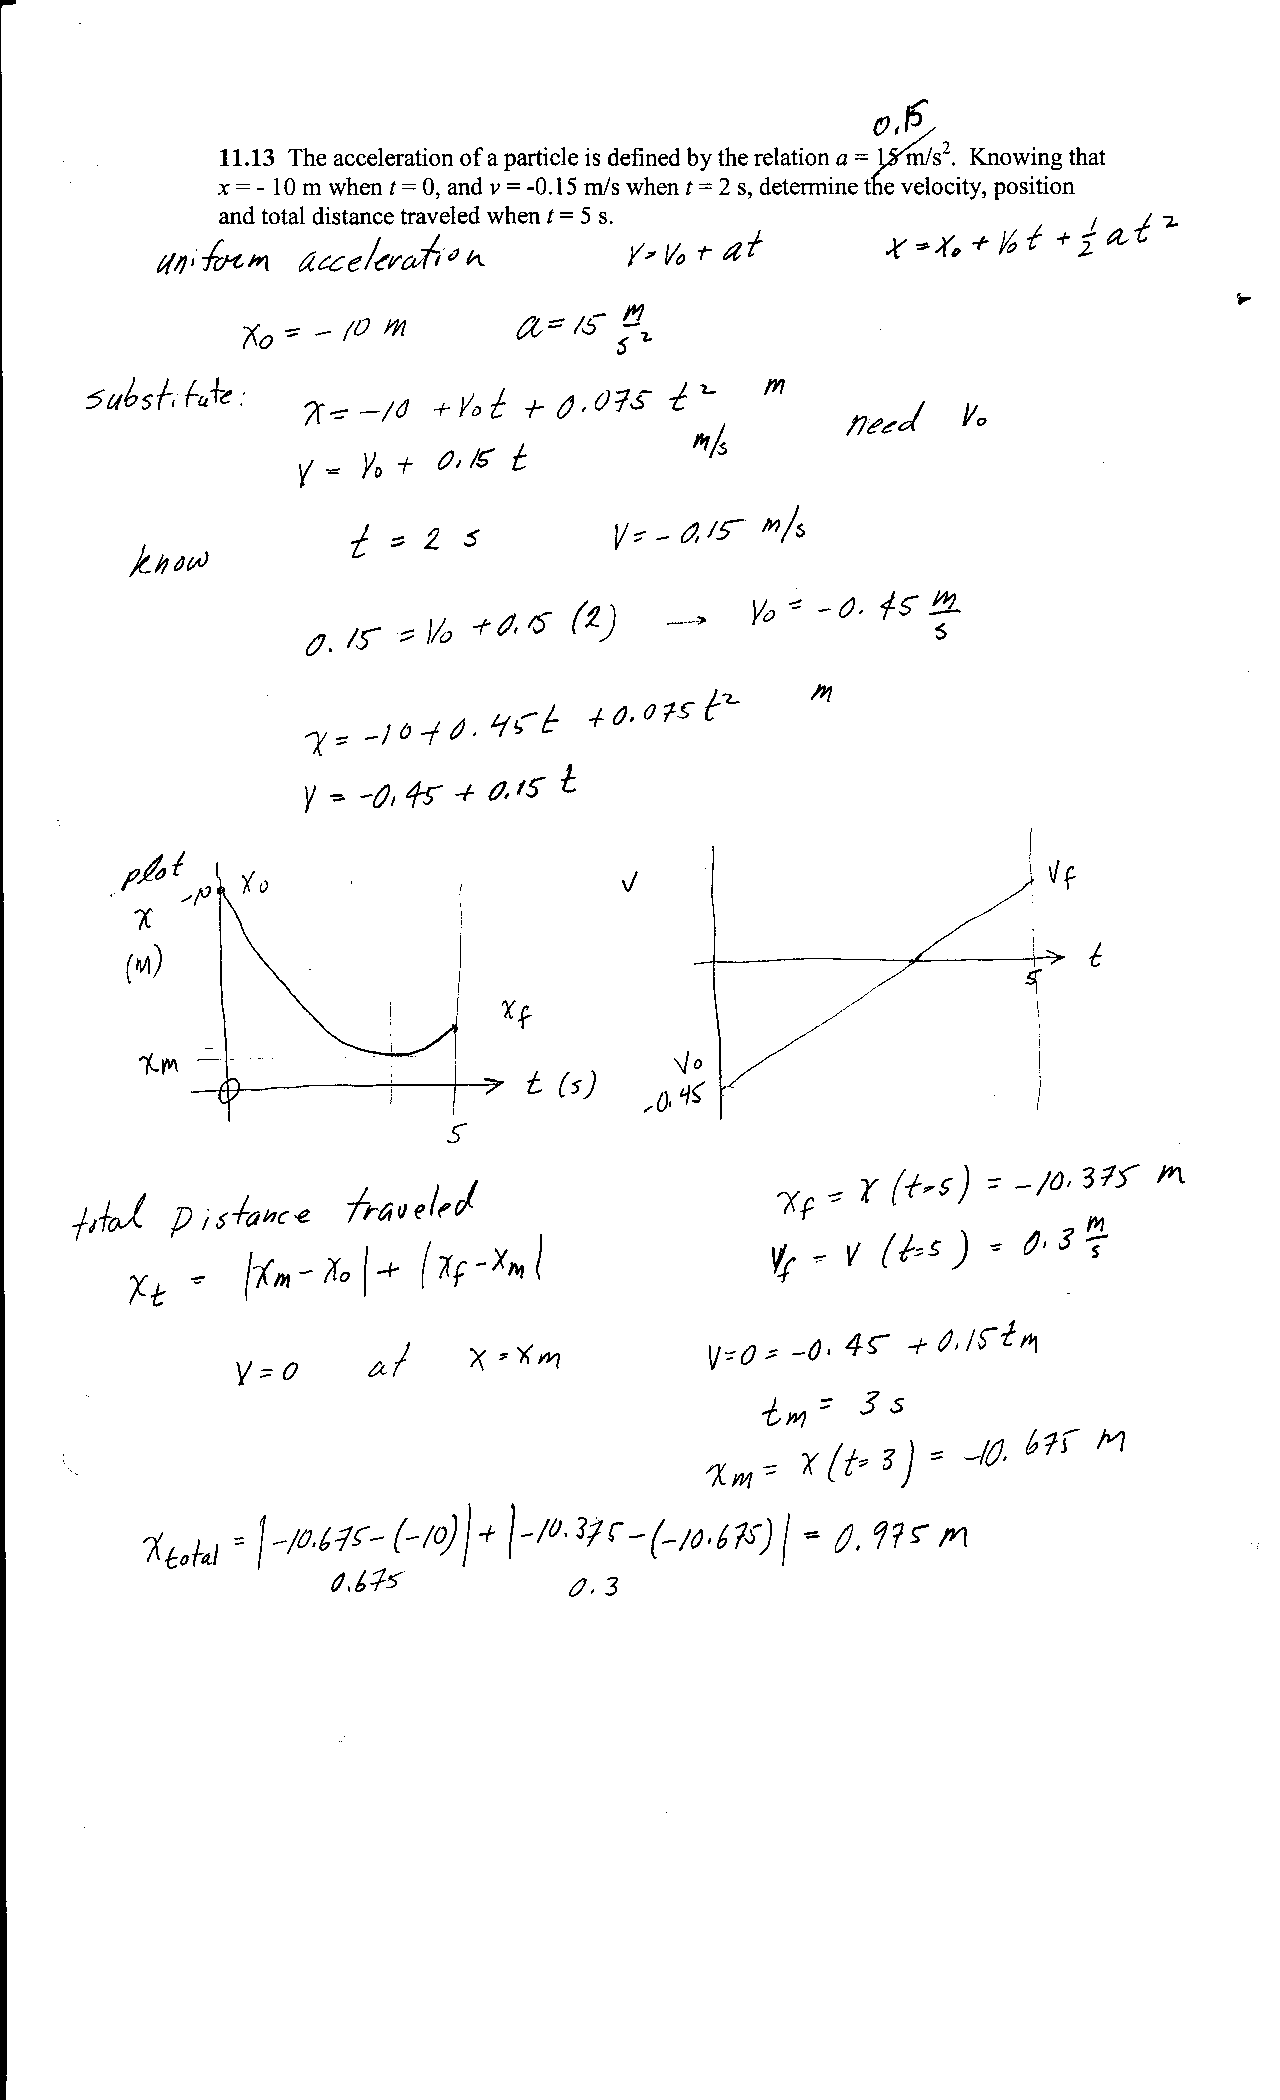 0.15
11.13 The acceleration of a particle is defined by the relation a = 15 m/s². Knowing that
x = - 10 m when t = 0, and v = -0.15 m/s when t = 2 s, determine the velocity, position
and total distance traveled when t = 5 s.
uniform acceleration V=V₀ + at x = x₀ + V₀t + ½at²
x₀ = -10 m a = 15 m/s²
substitute: x = -10 + V₀t + 0.075 t² m
need V₀
V = V₀ + 0.15 t m/s
know t = 2 s V = -0.15 m/s
0.15 = V₀ + 0.15 (2) → V₀ = -0.45 m/s
x = -10 + 0.45t + 0.075t² m
V = -0.45 + 0.15 t
plot x (m)
-10 x₀
xm
xf
t (s)
5
V
Vf
t
5
V₀
-0.45
total Distance traveled
xf = x (t=5) = -10.375 m
xt = |xm - x₀| + |xf - xm|
Vf = V (t=5) = 0.3 m/s
V=0 at x = xm
V=0 = -0.45 + 0.15tm
tm = 3 s
xm = x (t=3) = -10.675 m
xtotal = |-10.675-(-10)| + |-10.375-(-10.675)| = 0.975 m
0.675 0.3